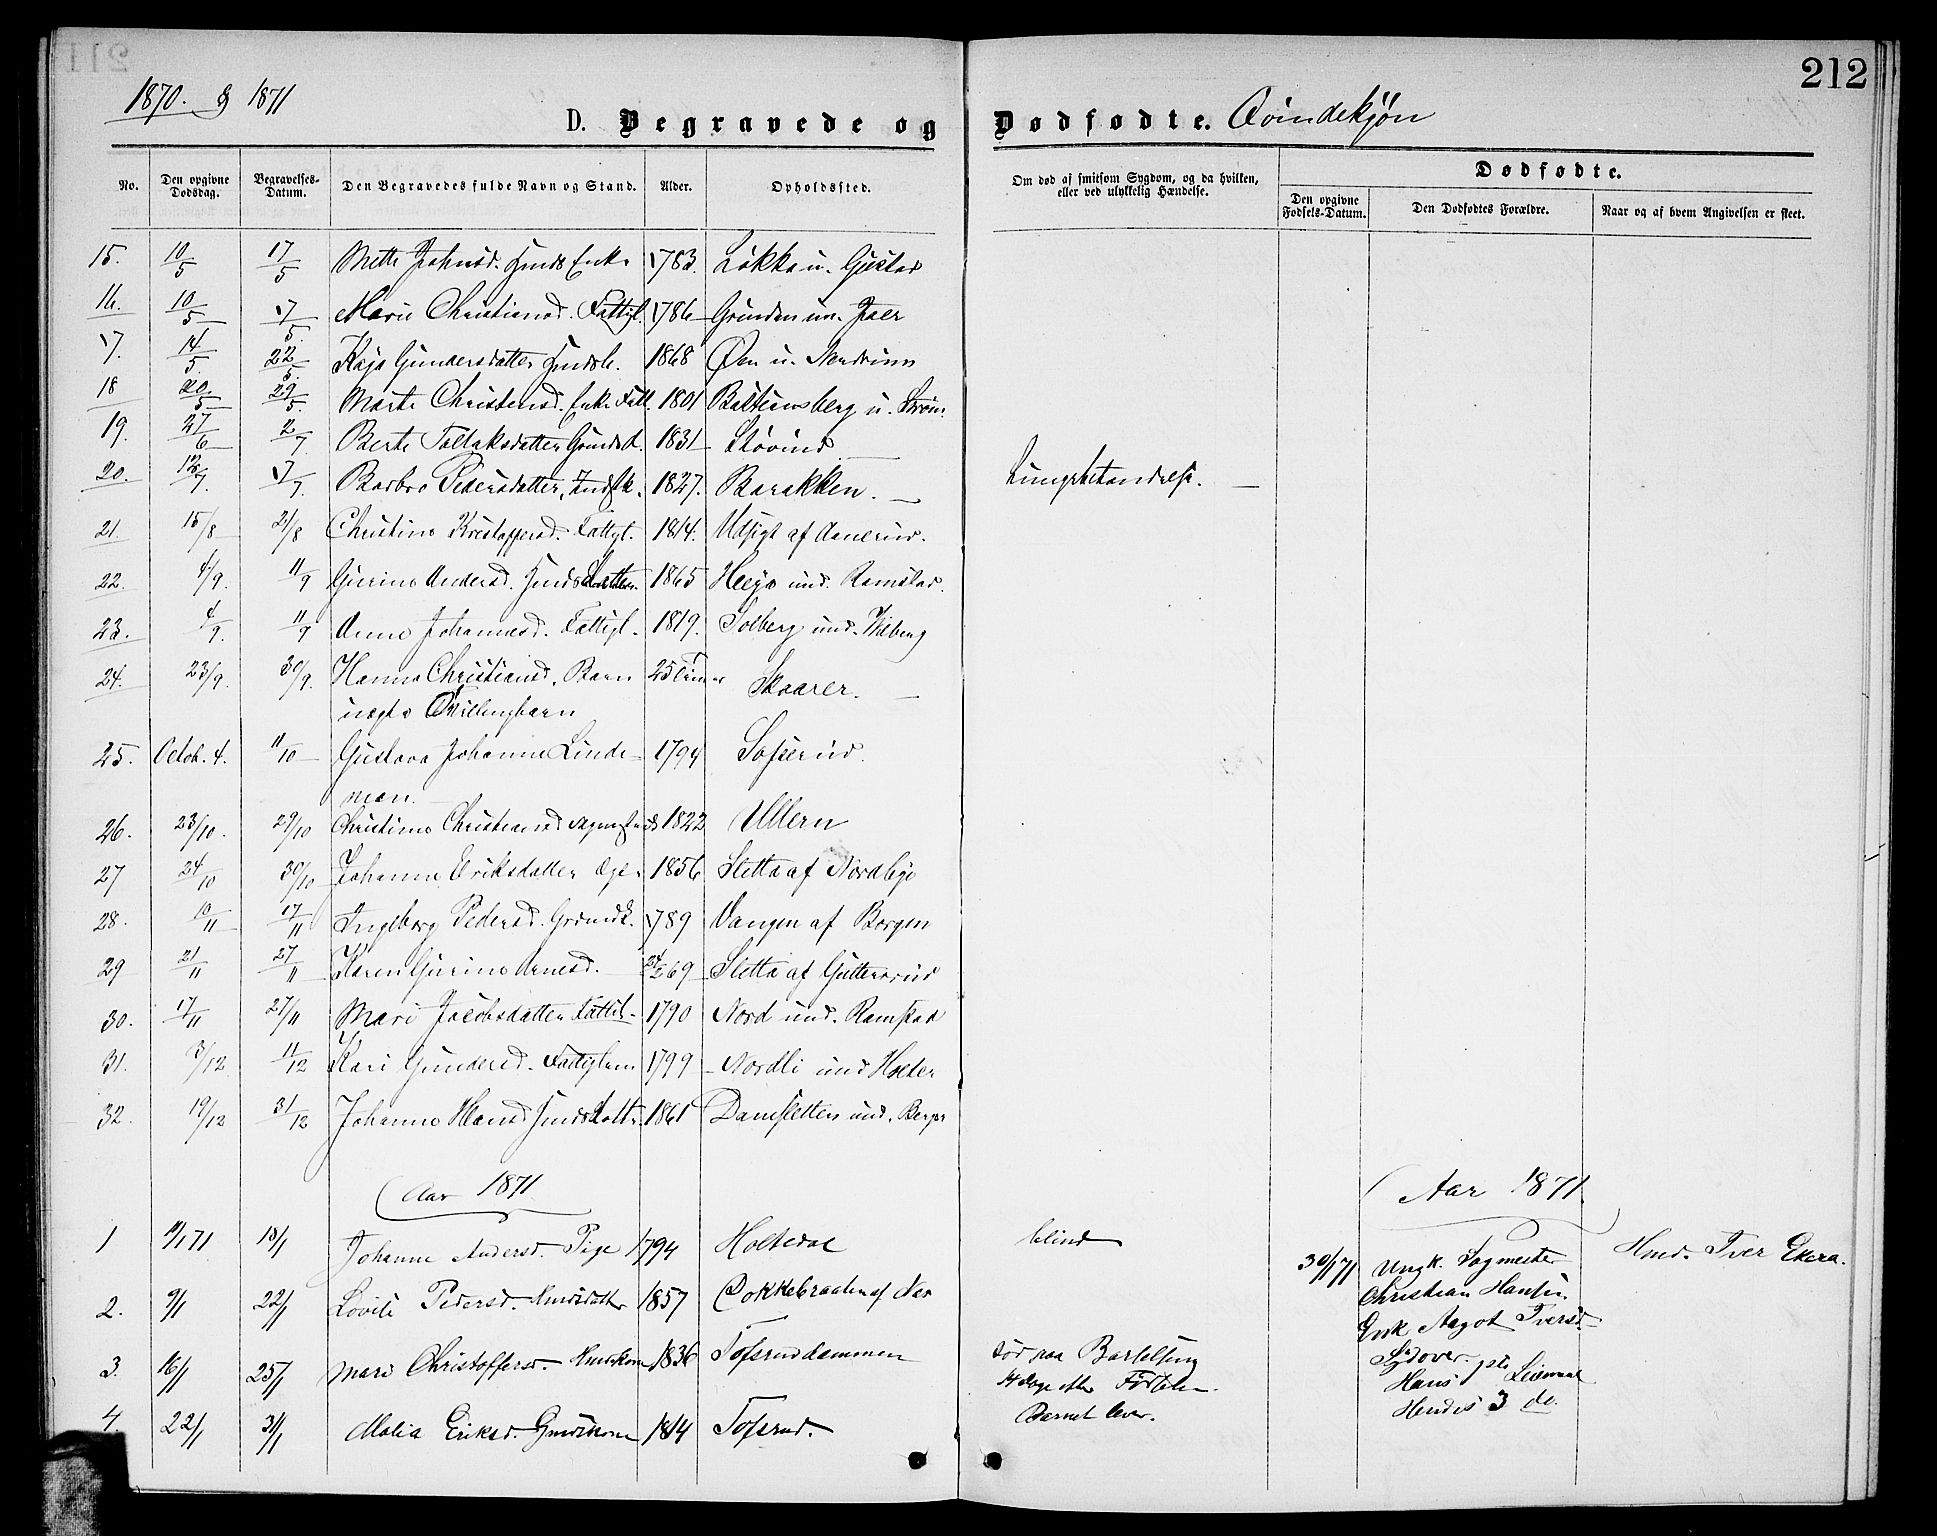 212
1870. & 1871
D. Begravede og Dødfødte. Qvindekjøn
No. Den opgivne Dødsdag. Begravelses-Datum. Den Begravedes fulde Navn og Stand. Alder. Opholdssted. Om død af smitsom Sygdom, og da hvilken, eller ved ulykkelig Hændelse. Dødfødte.
Den opgivne Fødsels-Datum. Den Dødfødtes Forældre. Naar og af hvem Angivelsen er skeet.
15. 10/5 17/5 Mette Johnsd. Enke 1783. Løkka u. Gustad
16. 10/5 17/5. Marie Christiansd. Fattigl. 1786 Grinden un. Jaer
17. 14/5. 22/5. Kaja Gundersdatter 1868 Øen u.
18 20/5 29/5. Marte Christensd. Enke Fatt. 1801 Bastiansberg u. Strøm.
19. 27/6 2/7 Berte Tollaksdatter 1831 Støvind
20. 12/7. 17/7. Barbro Pedersdatter, 1827. Barakken. Lungebetændelse.
21. 15/8 21/8 Christine Kristoffersd. Fattigl. 1814. Udsigt af Aanerud.
22. 4/9. 11/9 Gurine Andersd. datter 1865 Heya und. Ramstad.
23. 4/9. 11/9 Anne Johannesd. Fattigl. 1819. Solberg und. Wilberg
24. 23/9. 30/9. Hanna Christiansd. Barn 25 Timer Skaarer.
uægte Tvillingbarn
25. Octob. 4. 11/10 Gustava Johanne Linde- 1794 Tofserud.
man.
26. 23/10. 29/10 Christine Christiansd 1822 Ullern
27 24/10 30/10 Johanne Eriksdatter 1856 Sletta af Nordbye
28. 10/11 17/11 Ingeborg Pedersd. 1789 Vangen af Borgen
29 21/11 27/11 Karen Gurine Arnesd. 69 Sletta af Guttersrud
30. 17/11 27/11 Mari Jacobsdatter Fattigl. 1790 Nord und. Ramstad
31. 3/12 11/12 Kari Gundersd. Fattiglem 1799 Nordli und Holter
32. 19/12 31/12 Johanne Hansd datter 1861 Damsletten und. Berger
Aar 1871 Aar 1871
1 11/1 71 18/1 Johanne Andersd. Pige 1794 Holtedal blind 30/1 71 Ungk. Sagmester Hmd. Iver Ekera.
Christian Hansen.
2. 9/1 22/1 Lovise Pedersd. Hmdsdatter 1857 Dokkebraaten af Nes
Enk Aagot Iversd.
3. 16/1 25/1 Mari Christoffersd. Hmdskone 1836 Tofsruddammen død paa Barselseng
14 Dage efter Fødselen.
Barnet lever.
Hans
Hendes 3 do.
4. 22/1 31/1 Malia Eriksd. Gmdskone 1814 Tofsrud.